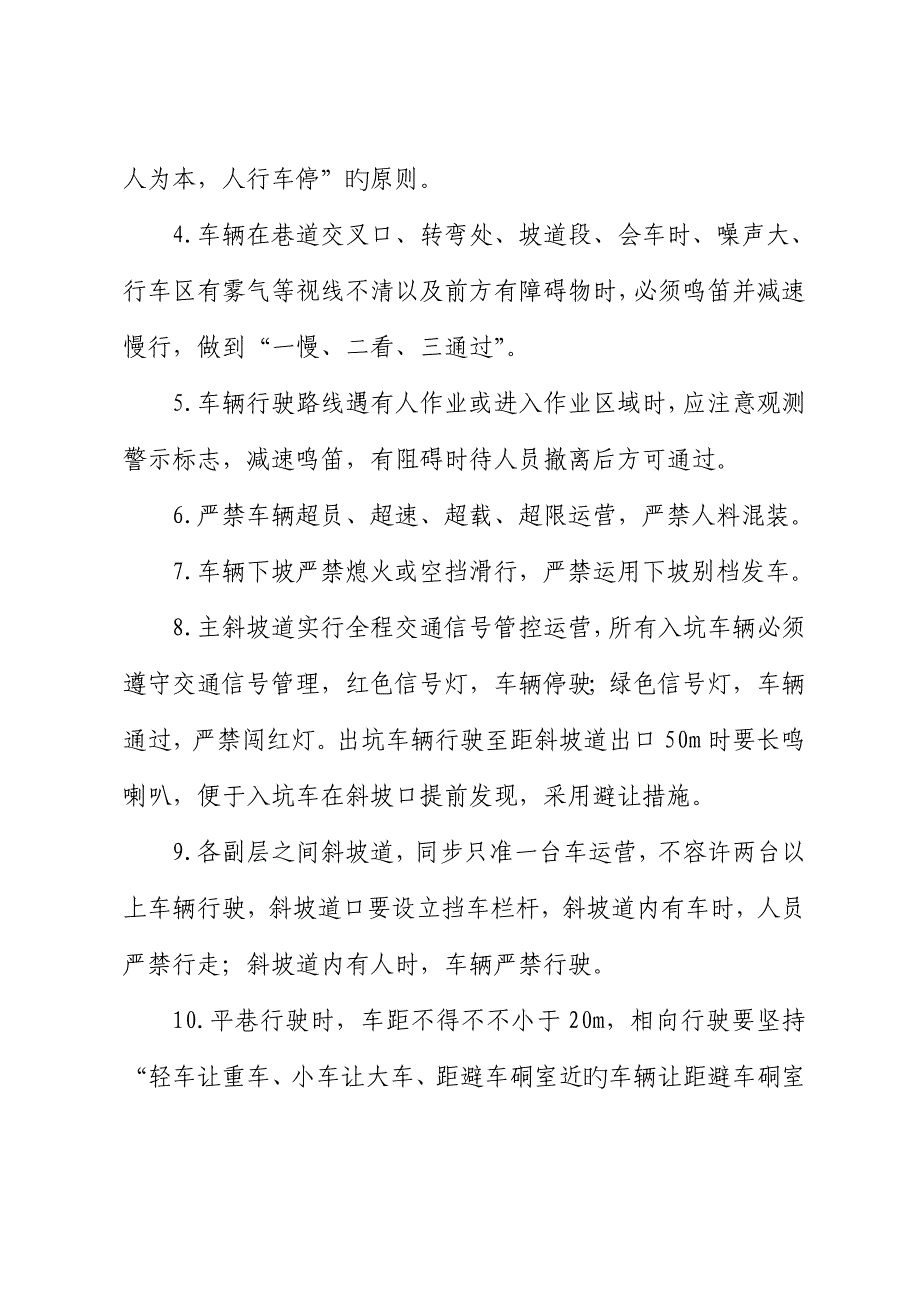 人为本，人行车停”旳原则。
4.车辆在巷道交叉口、转弯处、坡道段、会车时、噪声大、
行车区有雾气等视线不清以及前方有障碍物时，必须鸣笛并减速
慢行，做到“一慢、二看、三通过”。
5.车辆行驶路线遇有人作业或进入作业区域时，应注意观测
警示标志，减速鸣笛，有阻碍时待人员撤离后方可通过。
6.严禁车辆超员、超速、超载、超限运营，严禁人料混装。
7.车辆下坡严禁熄火或空挡滑行，严禁运用下坡别档发车。
8.主斜坡道实行全程交通信号管控运营，所有入坑车辆必须
遵守交通信号管理，红色信号灯，车辆停驶；绿色信号灯，车辆
通过，严禁闯红灯。出坑车辆行驶至距斜坡道出口 50m 时要长鸣
喇叭，便于入坑车在斜坡口提前发现，采用避让措施。
9.各副层之间斜坡道，同步只准一台车运营，不容许两台以
上车辆行驶，斜坡道口要设立挡车栏杆，斜坡道内有车时，人员
严禁行走；斜坡道内有人时，车辆严禁行驶。
10.平巷行驶时，车距不得不不小于 20m，相向行驶要坚持
“轻车让重车、小车让大车、距避车硐室近旳车辆让距避车硐室